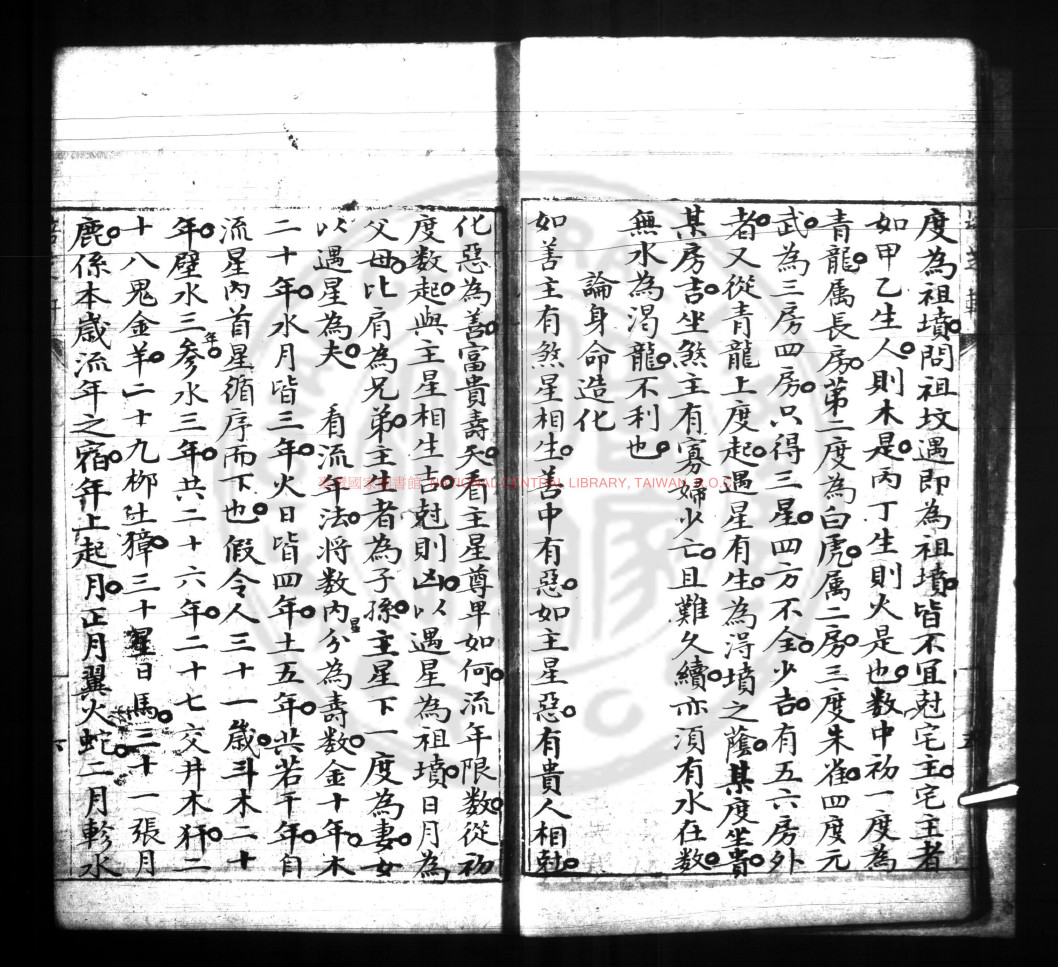 度為祖墳問祖坟遇即為祖墳皆不宜尅宅主宅主者
如甲乙生人則木是丙丁生則火是也数中初一度為
青龍属長房第二度為白虎属二房三度朱雀四度元
武為三房四房只得三星四方不全少吉有五六房外
者又從青龍上度起遇星有生為淂墳之蔭某度坐貴
某房吉坐煞主有寡婦少亡且難久續亦湏有水在数
無水為渴龍不利也
論身命造化
如善主有煞星相生善中有惡如主星惡有貴人相尅
化惡為善富貴壽夭看主星尊卑如何流年限数從初
度数起與主星相生吉尅則凶以遇星為祖墳日月為
父母比肩為兄弟主生者為子孫主星下一度為妻女
以遇星為夫 看流年法将数內分為壽数金十年木
星
二十年水月皆三年火日皆四年土五年共若干年自
流星內首星循序而下也假令人三十一歲斗木二十
年壁水三年參水三年共二十六年二十七交井木犴二
十八鬼金羊二十九柳土獐三十星日馬三十一張月
鹿係本歲流年之宿年上起月正月翼火蛇二月軫水
臺灣國家圖書館, NATIONAL CENTRAL LIBRARY, TAIWAN, R.O.C.